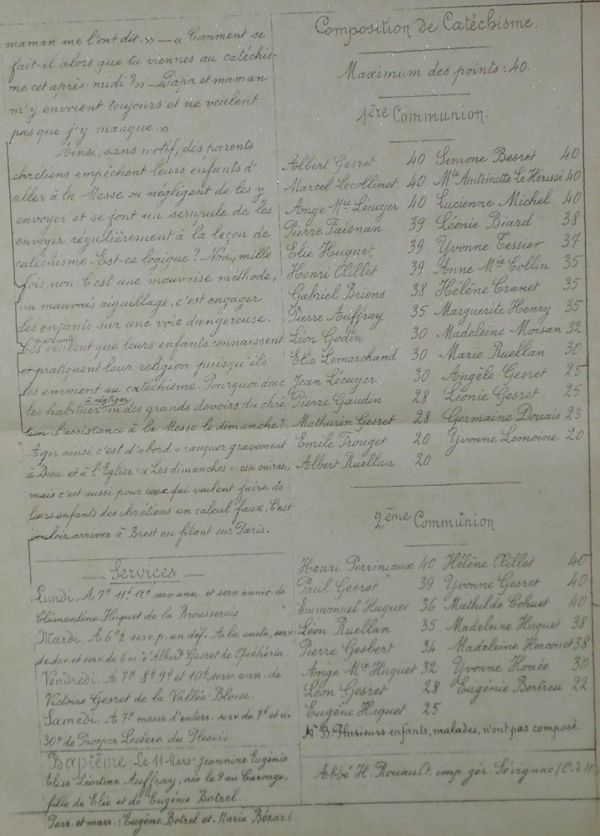 maman me l'ont dit. » — « Comment se
fait-il alors que tu viennes au catéchis-
me cet après-midi ? » — « Papa et maman
m'y envoient toujours et ne veulent
pas que j'y manque. »
Ainsi, sans motif, des parents
chrétiens empêchent leurs enfants d'
aller à la Messe ou négligent de les y
envoyer et se font un scrupule de les
envoyer régulièrement à la leçon de
catéchisme. Est-ce logique ? Non, mille
fois non. C'est une mauvaise méthode,
un mauvais aiguillage, c'est engager
les enfants sur une voie dangereuse.
Ces veulent que leurs enfants connaissent
et pratiquent leur religion puisqu'ils
les envoient au catéchisme. Pourquoi donc
les habituer à négliger un des grands devoirs du chré-
tien l'assistance à la Messe le dimanche ?
Agir ainsi c'est d'abord manquer gravement
à Dieu et à l'Eglise « Les dimanches messe ouïras,
mais c'est aussi pour ceux qui veulent faire de
leurs enfants des chrétiens un calcul faux. C'est
vouloir arriver à Brest en filant sur Paris.
Services
Lundi. A 7h 11e 12e serv. ann. et serv. anniv. de
Clémentine Huguet de la Brousse
Mardi. A 6h½ serv. p. un déf. A la suite, serv.
de dev. et serv. de 6 m. d'Albert Gesret de Quéhéria.
Vendredi. A 7h 8e 9e et 10e serv. ann. de
Victoire Gesret de la Vallée-Blosse.
Samedi. A 7h messe d'enterr. serv. de 7e et
30e de Prosper Leclerc du Plessis
Baptême. Le 11 Mars. Jeannine Eugénie
Elise Léontine Auffray, née le 9 au Carouge,
fille de Elie et de Eugénie Botrel.
Parr. et marr. : Eugène Botrel et Maria Bézard.
Composition de Catéchisme.
Maximum des points : 40.
1ère Communion.
Albert Gesret 40 Simone Besret 40
Marcel Lecollinet 40 Mie Antoinette Le Hérissé 40
Ange Mie Lécuyer 40 Lucienne Michel 40
Pierre Faisnan 39 Léonie Biard 38
Elie Huguet 39 Yvonne Tessier 37
Henri Œillet 39 Anne Mie Collin 35
Gabriel Briens 38 Hélène Cranet 35
Pierre Auffray 35 Marguerite Henry 35
Léon Godin 30 Madeleine Moisan 32
Elie Lemarchand 30 Marie Ruellan 30
Jean Lécuyer 30 Angèle Gesret 25
Pierre Gaudin 28 Léonie Gesret 25
Mathurin Gesret 28 Germaine Douais 23
Emile Frouget 20 Yvonne Lemoine 20
Albert Ruellan 20
2ème Communion
Henri Perriniaux 40 Hélène Œillet 40
Paul Gesret 39 Yvonne Gesret 40
Emmanuel Huguet 36 Mathilde Cohuet 40
Léon Ruellan 35 Madeleine Huguet 38
Pierre Gesbert 34 Madeleine Hercouet 38
Ange Mie Huguet 32 Yvonne Houée 30
Léon Gesret 28 Eugénie Bertreu 22
Eugène Huguet 25
N.B. Plusieurs enfants, malades, n'ont pas composé.
Abbé H. Rouault, imp. gér. Sévignac (C. d N)